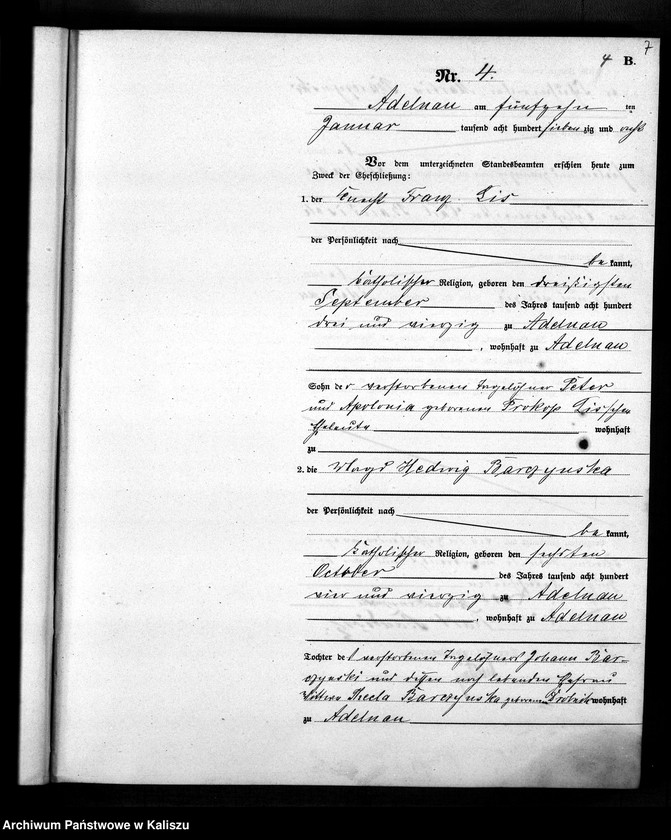 7
4 B.
Nr. 4.
Adelnau am fünfzehn ten
Januar tausend acht hundert sieben zig und acht
Vor dem unterzeichneten Standesbeamten erschien heute zum
Zweck der Eheschließung:
1. der Knecht Franz Lis
der Persönlichkeit nach
be kannt,
katholischer Religion, geboren den dreißigsten
September des Jahres tausend acht hundert
drei und vierzig zu Adelnau
, wohnhaft zu Adelnau
Sohn der verstorbenen Ingelöhner Peter
und Apolonia geborenen Prokop Lisschen
Eheleute wohnhaft
zu
2. die Magd Hedwig Karczynska
der Persönlichkeit nach
be kannt,
katholischer Religion, geboren den sechsten
October des Jahres tausend acht hundert
vier und vierzig zu Adelnau
, wohnhaft zu Adelnau
Tochter des verstorbenen Johann Kar-
czynski und dessen noch lebenden Ehefrau
Thecla Karczynska geborene wohnhaft
zu Adelnau
Archiwum Państwowe w Kaliszu